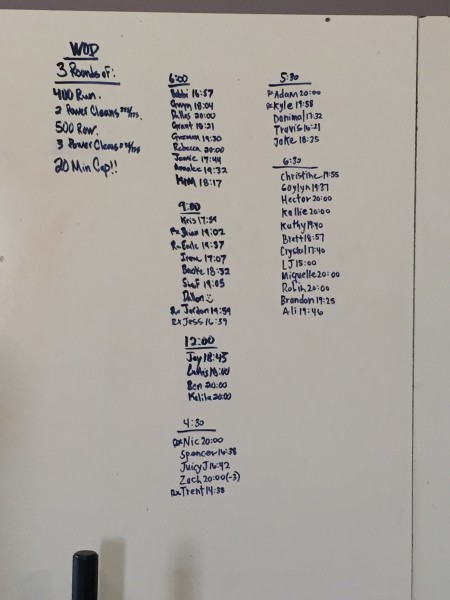 WOD
3 Rounds of:
400 Run.
2 Power Cleans
500 Row.
3 Power Cleans
20 Min Cap!!
6:00
Bobbi 16:57
Gwyn 18:04
20:00
Grant 18:21
19:30
Rebecca 20:00
Jamie 17:44
Annalee 19:32
Kim 18:17
9:00
Kris 17:59
Rx 19:02
Rx 19:37
Irene 17:07
Brooke 18:32
Stef 19:05
Dillon
Rx Jordan 19:59
Rx Jess 16:39
12:00
Jay 18:45
Chris 18:00
Ben 20:00
Kalila 20:00
4:30
Rx Nic 20:00
Spencer 16:38
Juicy J 16:42
Zach 20:00 (-3)
Rx Trent 14:38
5:30
Adam 20:00
Kyle 19:58
Danimal 17:32
Travis 16:21
Jake 18:25
6:30
Christine 19:55
Goylyn 19:37
Hector 20:00
Kallie 20:00
Kathy 19:40
Brett 18:57
Crystal 17:40
LJ 15:00
Miquelle 20:00
Robin 20:00
Brandon 19:25
Ali 19:46